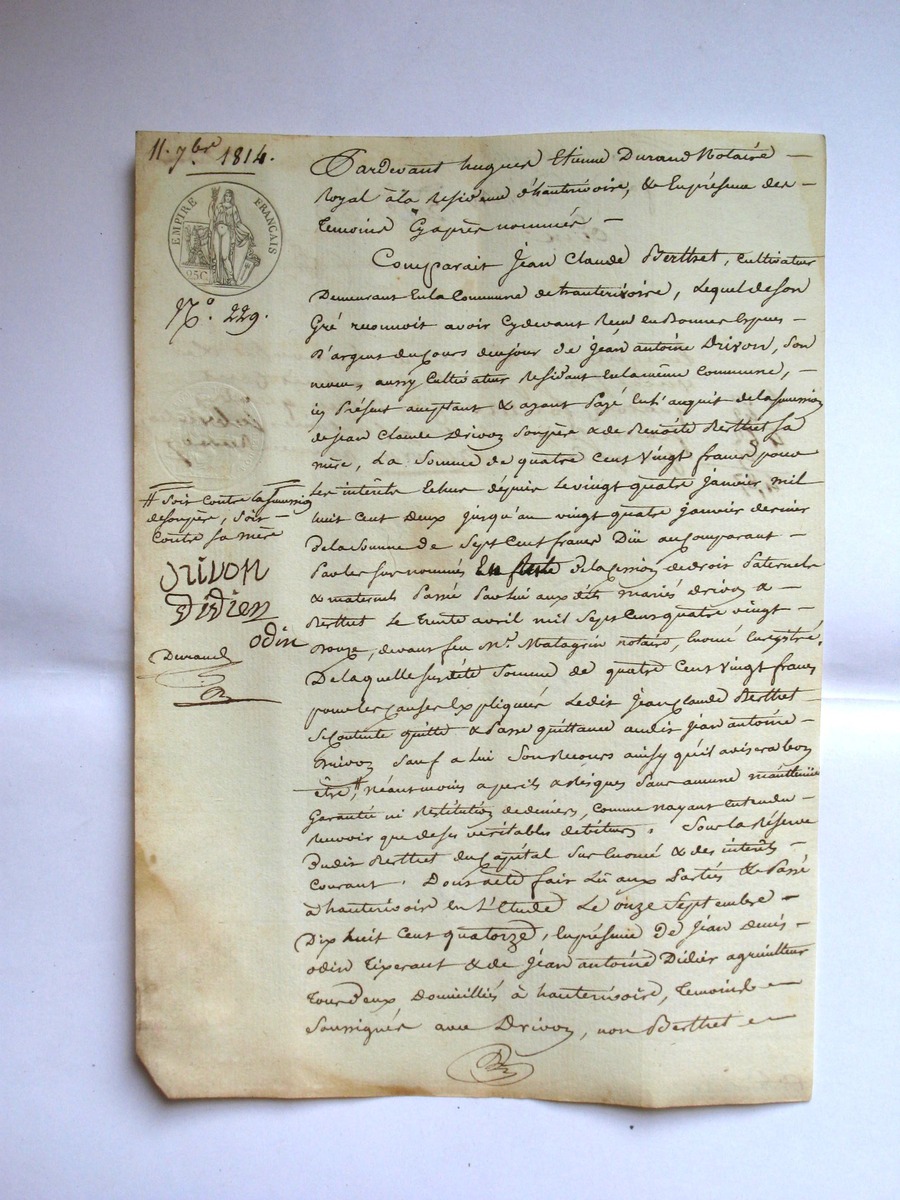 11. 7bre 1814.
EMPIRE FRANÇAIS
25C
No. 229.
Pardevant hugues Etienne Durand Notaire
Royal à la Residence d'hauterivoire, & En présence des
Temoins Cyaprès nommés
Comparait Jean Claude Berthet, Cultivateur
Demeurant En la Commune de hauterivoire, Lequel de son
Gré reconnoit avoir Cydevant Reçu en Bonnes Espèces
D'argent du Cours de ce jour de Jean antoine Drivon, Son
neveu, aussy Cultivateur Residant En la même Commune,
icy Présent acceptant & ayant Payé En l'acquit de la Succession
de Jean Claude Drivon Son père & de Benoite Berthet sa
mère, La Somme de quatre Cent Vingt francs pour
Les interêts Echus depuis Le vingt quatre janvier mil
huit Cent Deux jusqu'au vingt quatre janvier dernier
De la Somme de Sept Cent francs Düe au Comparant
Par les sur nommés De la Cession de droit Paternels
& maternels Passé Par lui aux dits mariés Drivon &
Berthet Le trente avril mil Sept Cent quatre vingt
Douze, devant feu Me. Matagrin notaire, Enoncé Enregistré.
De laquelle susdite Somme de quatre Cent Vingt francs
pour les Causes Expliquées Ledit Jean Claude Berthet
Se Contente quitte & Passe quittance audit Jean antoine
Drivon Sauf a Lui Son Recours ainsy qu'il avisera bon
être, # néantmoins a perils & risques Sans aucune maintenüe
Garantie ni Restitution de deniers, Comme n'ayant Entendu
Recevoir que de ses véritables débiteurs. Sous la Réserve
Dudit Berthet du Capital Sus Enoncé & des interêts
Courant. Dont acte fait Lû aux Parties & Passé
à hauterivoire en L'Etude Le onze Septembre
Dix huit Cent quatorze, En présence de Jean Denis
odin Tixerant & de Jean antoine Didier agriculteur
Tous Deux Domiciliés à hauterivoire, Temoins
Soussignés avec Drivon, non Berthet
# Soit Contre la Succession
de Son père, Soit
Contre Sa mère
Drivon
Didier
odin
Durand